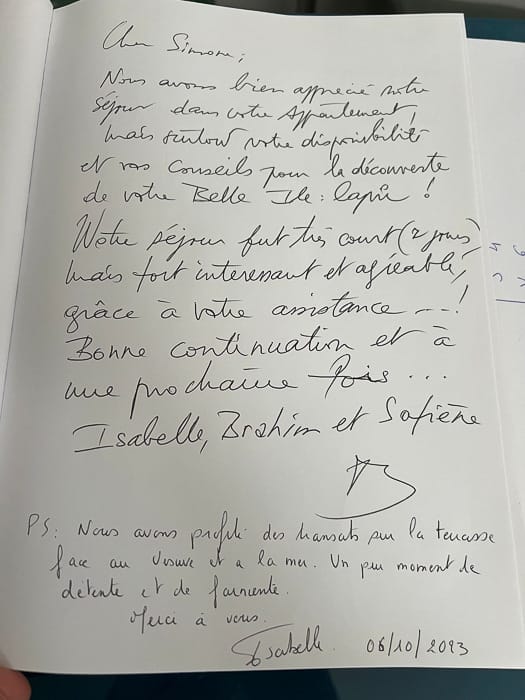 Cher Simone,
Nous avons bien apprécié notre
séjour dans votre Appartement,
mais surtout votre disponibilité
et vos conseils pour la découverte
de votre Belle Ile : Capri !
Notre séjour fut très court (2 jours)
mais fort interessant et agréable,
grâce à votre assistance ---!
Bonne continuation et à
une prochaine fois...
Isabelle, Brahim et Sofiène
PS: Nous avons profité des transats sur la terrasse
face au Vesuve et a la mer. Un pur moment de
détente et de farniente.
Merci à vous.
Isabelle. 06/10/2023